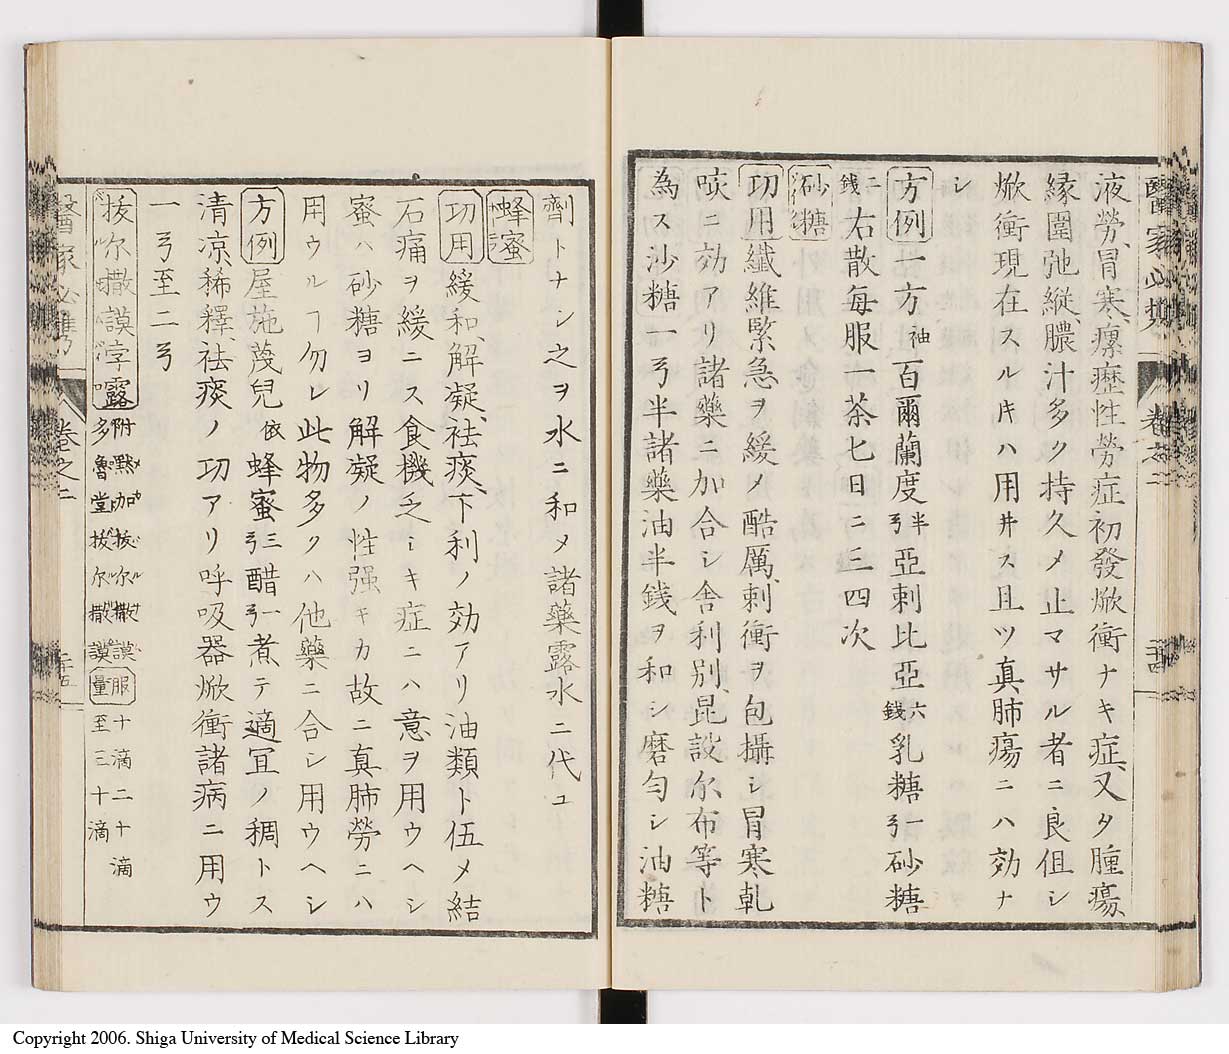 液勞、冒寒瘰癧性勞症初發焮衝ナキ症、又タ腫瘍、
緣圍弛縦膿汁多ク持久メ止マサル者ニ良但シ
焮衝現在スル𪜈ハ用井ス且ツ真肺瘍ニハ効ナ
シ
方例 一方 袖 百爾蘭度 半弓 亞刺比亞 六錢 乳糖 一弓 砂糖
二錢 右散每服一茶匕日ニ三四次
砂糖
功用 纖維緊急ヲ緩メ酷厲、刺衝ヲ包攝シ冒寒乾
咳ニ効アリ諸藥ニ加合シ舍利別、昆設尓布等ト
為ス沙糖一弓半諸藥油半銭ヲ和シ磨勻シ油糖
劑トナシ之ヲ水ニ和メ諸藥露水ニ代ユ
蜂蜜
功用 緩和、解凝、祛痰、下利ノ効アリ油類ト伍メ結
石痛ヲ緩ニス食機乏シキ症ニハ意ヲ用ウヘシ
蜜ハ砂糖ヨリ解凝ノ性强キカ故ニ真肺勞ニハ
用ウルヿ勿レ此物多クハ他藥ニ合シ用ウヘシ
方例 屋施蔑兒 依 蜂蜜 三弓 醋 一弓 煮テ適宜ノ稠トス
清凉、稀釋、祛痰ノ功アリ呼吸器焮衝諸病ニ用ウ
一弓至二弓
拔尓撒謨孛露 附 黙加拔尓撒謨 多魯堂拔尓撒謨 服量 十滴二十滴至三十滴
卷之二